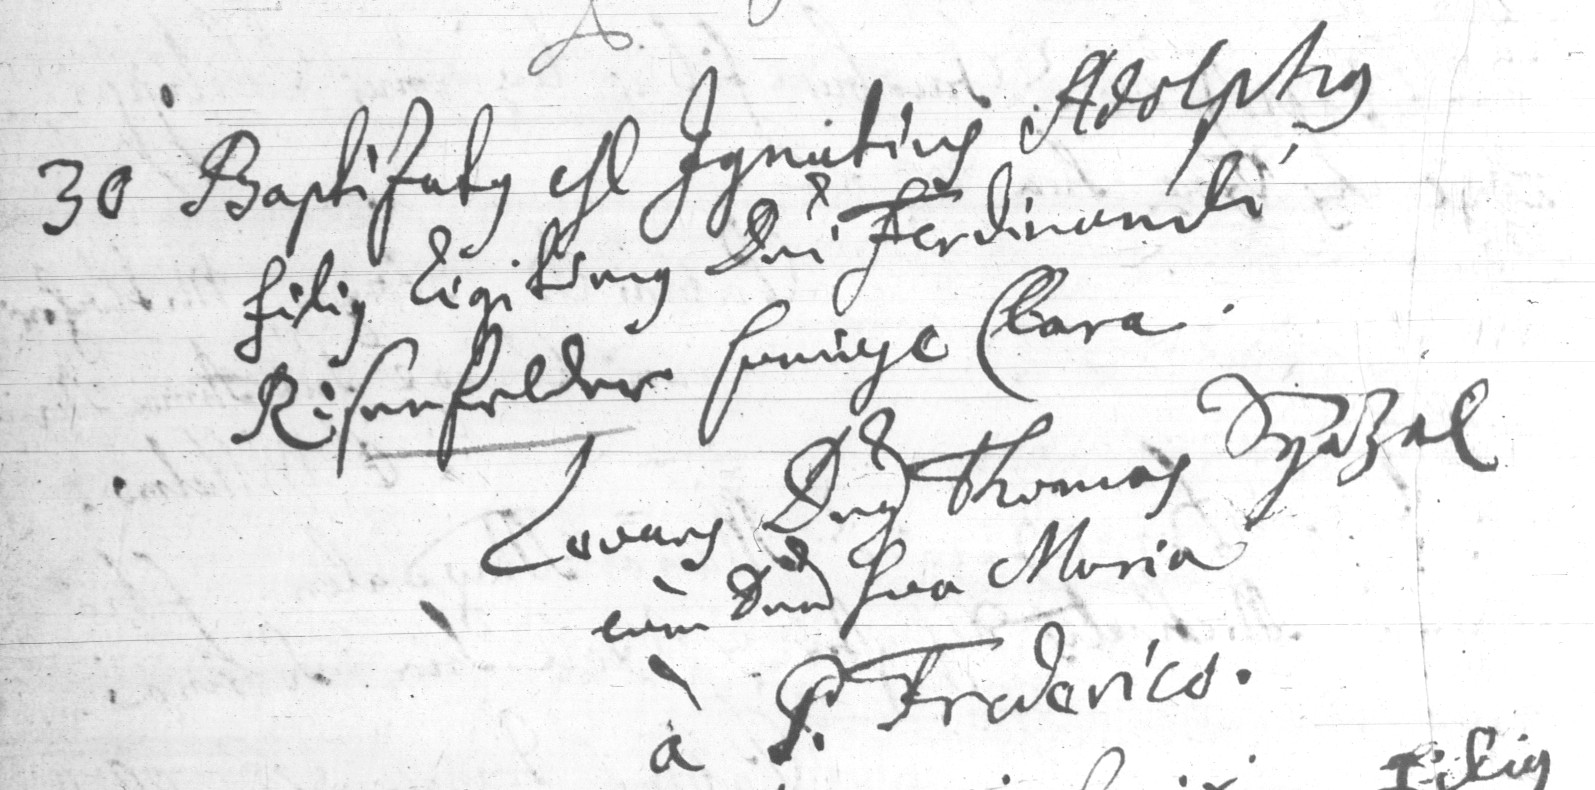 30 Baptizatus est Ignatius Adolphus
filius legitimus Dni Ferdinandi
Risenfelder coniuge Clara.
Levans Dnus Thomas
cum Dna sua Maria
à P. Frederico.
filius